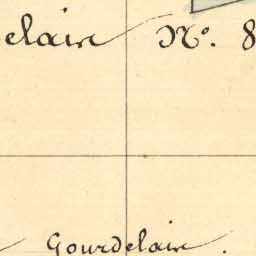 elain N°. 8
Gourdelain.